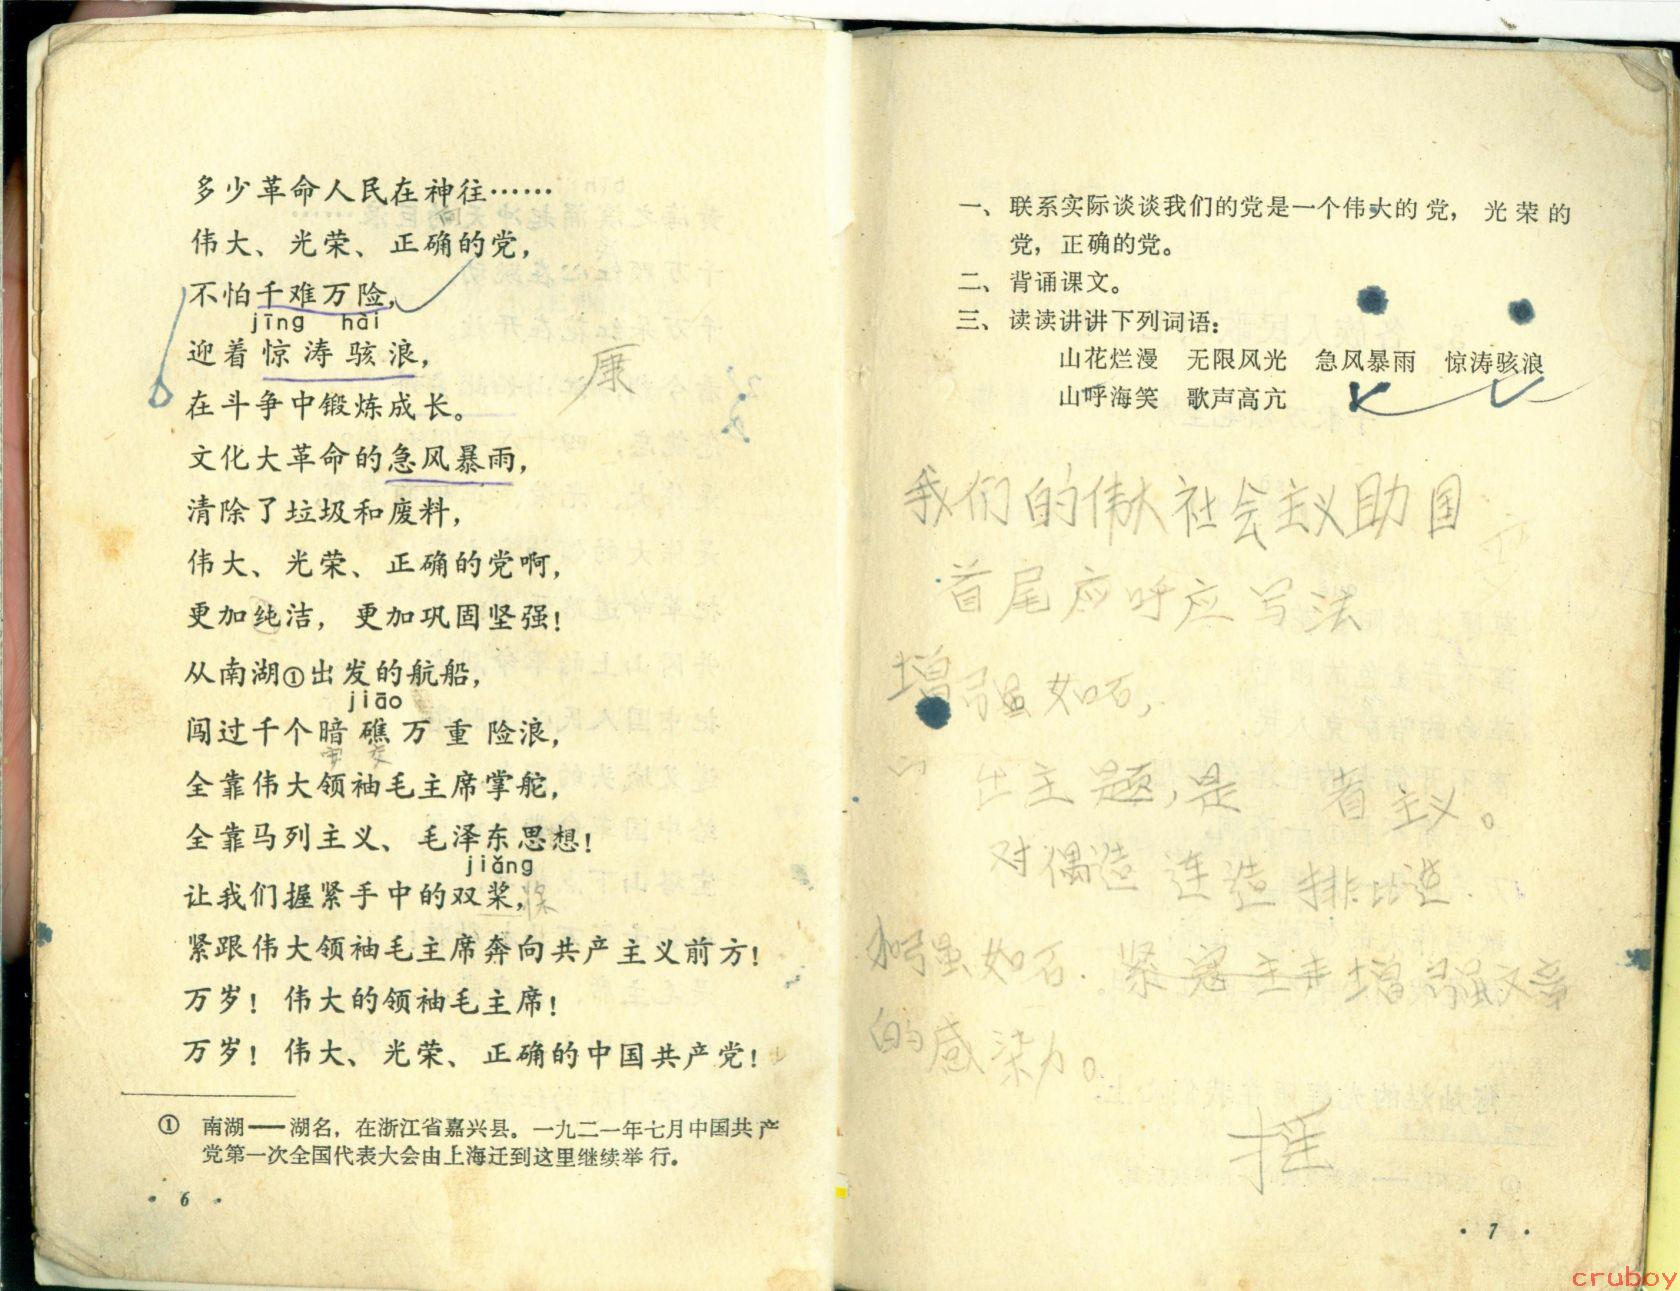 多少革命人民在神往……
伟大、光荣、正确的党，
不怕千难万险，
jīng hài
迎着惊涛骇浪，
康
在斗争中锻炼成长。
文化大革命的急风暴雨，
清除了垃圾和废料，
伟大、光荣、正确的党啊，
更加纯洁，更加巩固坚强！
从南湖①出发的航船，
jiāo
闯过千个暗礁万重险浪，
全靠伟大领袖毛主席掌舵，
全靠马列主义、毛泽东思想！
jiǎng
让我们握紧手中的双桨，
紧跟伟大领袖毛主席奔向共产主义前方！
万岁！伟大的领袖毛主席！
万岁！伟大、光荣、正确的中国共产党！
① 南湖——湖名，在浙江省嘉兴县。一九二一年七月中国共产
党第一次全国代表大会由上海迁到这里继续举行。
· 6 ·
一、联系实际谈谈我们的党是一个伟大的党，光荣的
党，正确的党。
二、背诵课文。
三、读读讲讲下列词语：
山花烂漫 无限风光 急风暴雨 惊涛骇浪
山呼海笑 歌声高亢
我们的伟大社会主义助国
首尾应呼应写法
增强如石，
出主题，是 者主义。
对偶造 连造 排比造
加强如石. 增强文章
的感染力。
摇
· 7 ·
cruboy